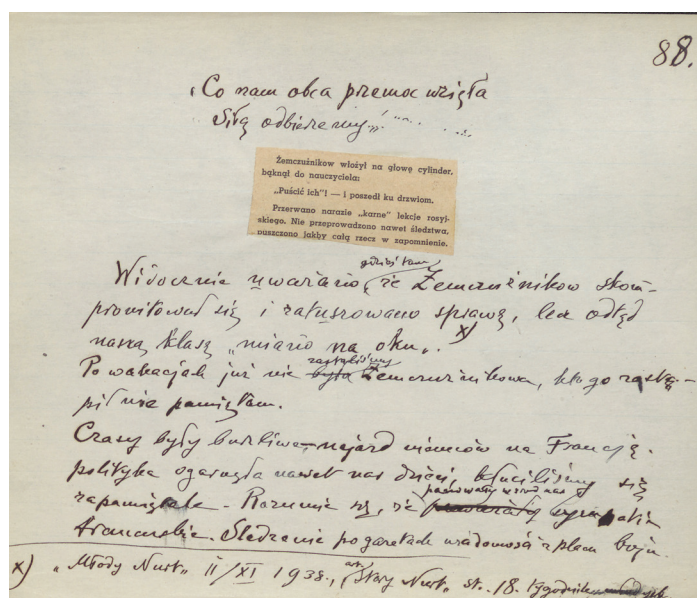 88.
„Co nam obca przemoc wzięła
Siłą odbierzemy!"
Żemczużnikow włożył na głowę cylinder,
bąknął do nauczyciela:
„Puścić ich"! — i poszedł ku drzwiom.
Przerwano narazie „karne" lekcje rosyj-
skiego. Nie przeprowadzono nawet śledztwa,
puszczono jakby całą rzecz w zapomnienie.
gdzieś tam
Widocznie uważano, że Żemczużnikow skom-
promitował się i zatuszowano sprawę, lecz odtąd
naszą klasę „miano na oku". x)
zastaliśmy
Po wakacjach już nie było Żemczużnikowa, kto go zastą-
pił nie pamiętam.
Czasy były burzliwe – najazd niemców na Francję.
polityka ogarnęła nawet nas dzieci, kłuciliśmy się
panowały wśród nas
zapamiętale. Rozumie się, że przeważały sympatie
francuskie. Śledzenie po gazetach wiadomości z placu boju
x) „Młody Nurt" II/XI 1938., art. Stary Nurt" st. 18. tygodnik